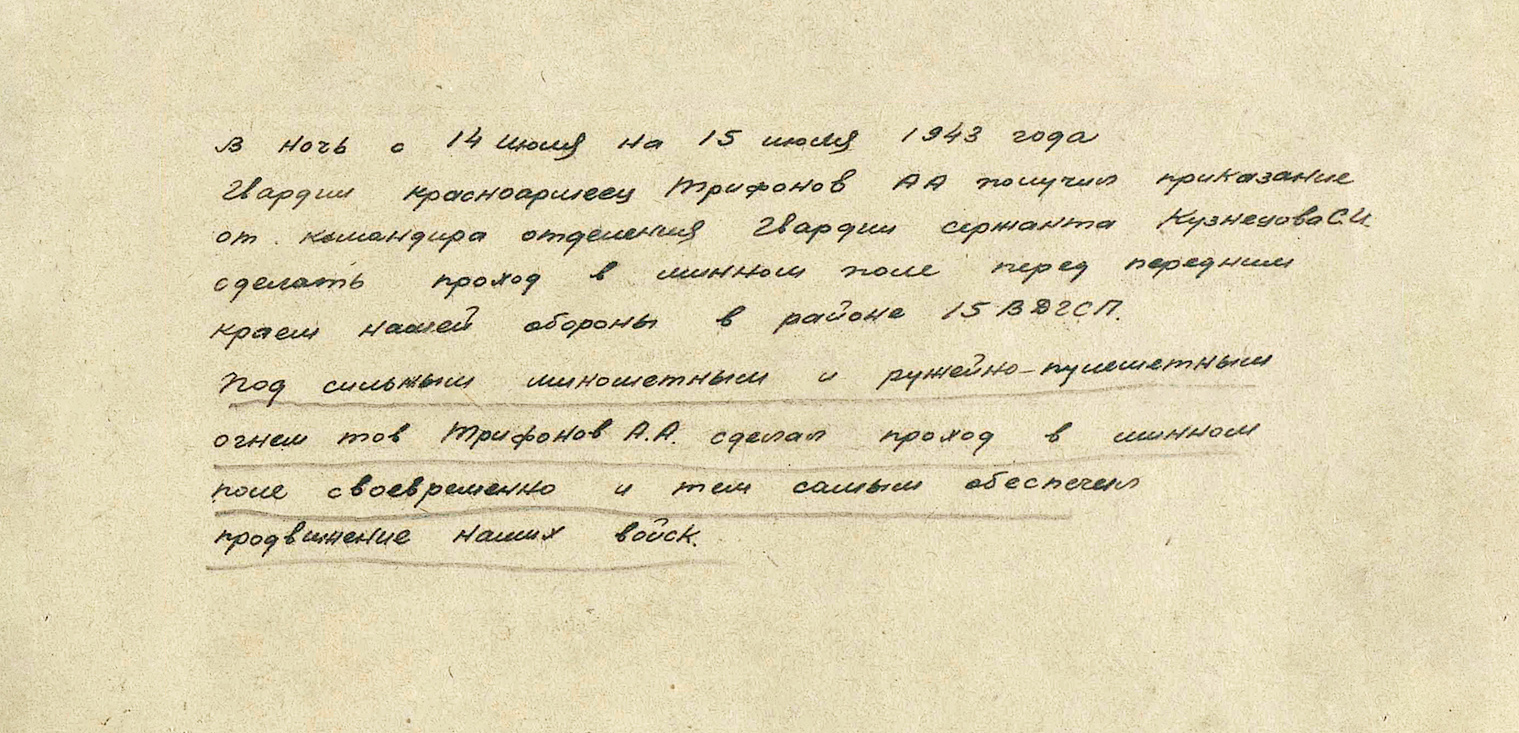 В ночь с 14 июля на 15 июля 1943 года
Гвардии красноармеец Трифонов АА получил приказание
от командира отделения Гвардии сержанта Кузнецова С.И.
сделать проход в минном поле перед передним
краем нашей обороны в районе 15 ВДГСП.
Под сильным минометным и ружейно-пулеметным
огнем тов Трифонов А.А. сделал проход в минном
поле своевременно и тем самым обеспечил
продвижение наших войск.